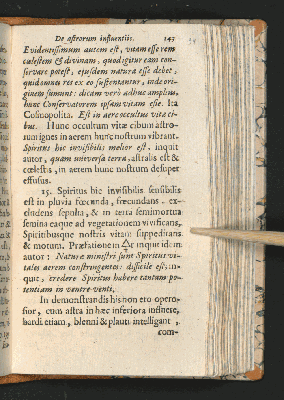 De astrorum influentiis. 143
Evidentissimum autem est, vitam esse rem
cælestem & divinam, quod igitur eam con-
servare potest, ejusdem naturæ esse debet,
quia omnis res ex eo sustentantur, unde ori-
ginem sumunt: dicam verò adhuc amplius,
hunc Conservatorem ipsam vitam esse. Ita
Cosmopolita. Est in aere occultus vitæ ci-
bus. Hunc occultum vitæ cibum astro-
rum ignes in aerem hunc nostrum vibrant.
Spiritus hic invisibilis melior est, inquit
autor, quam universa terra, astralis est &
cœlestis, in aerem hunc nostrum desuper
effusus.
15. Spiritus hic invisibilis sensibilis
est in pluvia fœcunda, fœcundans, ex-
cludens sepulta, & in terra semimortua
semina eaque ad vegetationem vivificans,
Spiritibusque nostris vitam suppeditans
& motum. Præfationem inquit idem
autor: Naturæ ministri sunt Spiritus vi-
tales aerem constringentes: difficile est, in-
quit, credere Spiritus habere tantam po-
tentiam in ventre venti.
In demonstrandis his non ero opero-
sior, cum astra in hæc inferiora influere,
bardi etiam, blenni & plauti intelligant,
com-